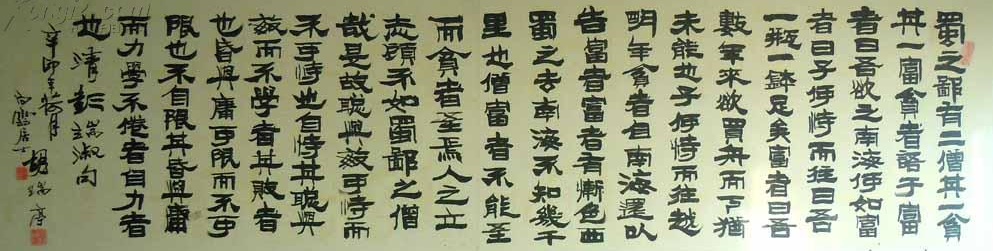 蜀之鄙有二僧其一貧
其一富貧者語于富
者曰吾欲之南海何如富
者曰子何恃而往曰吾
一瓶一鉢足矣富者曰吾
數年來欲買舟而下猶
未能也子何恃而往越
明年貧者自南海還以
告富者富者有慚色西
蜀之去南海不知幾千
里也僧富者不能至
而貧者至焉人之立
志顧不如蜀鄙之僧
哉是故聰與敏可恃而
不可恃也自恃其聰與
敏而不學者其敗者
也昏與庸可限而不可
限也不自限其昏與庸
而力學不倦者自力者
也清彭端淑句
辛卯